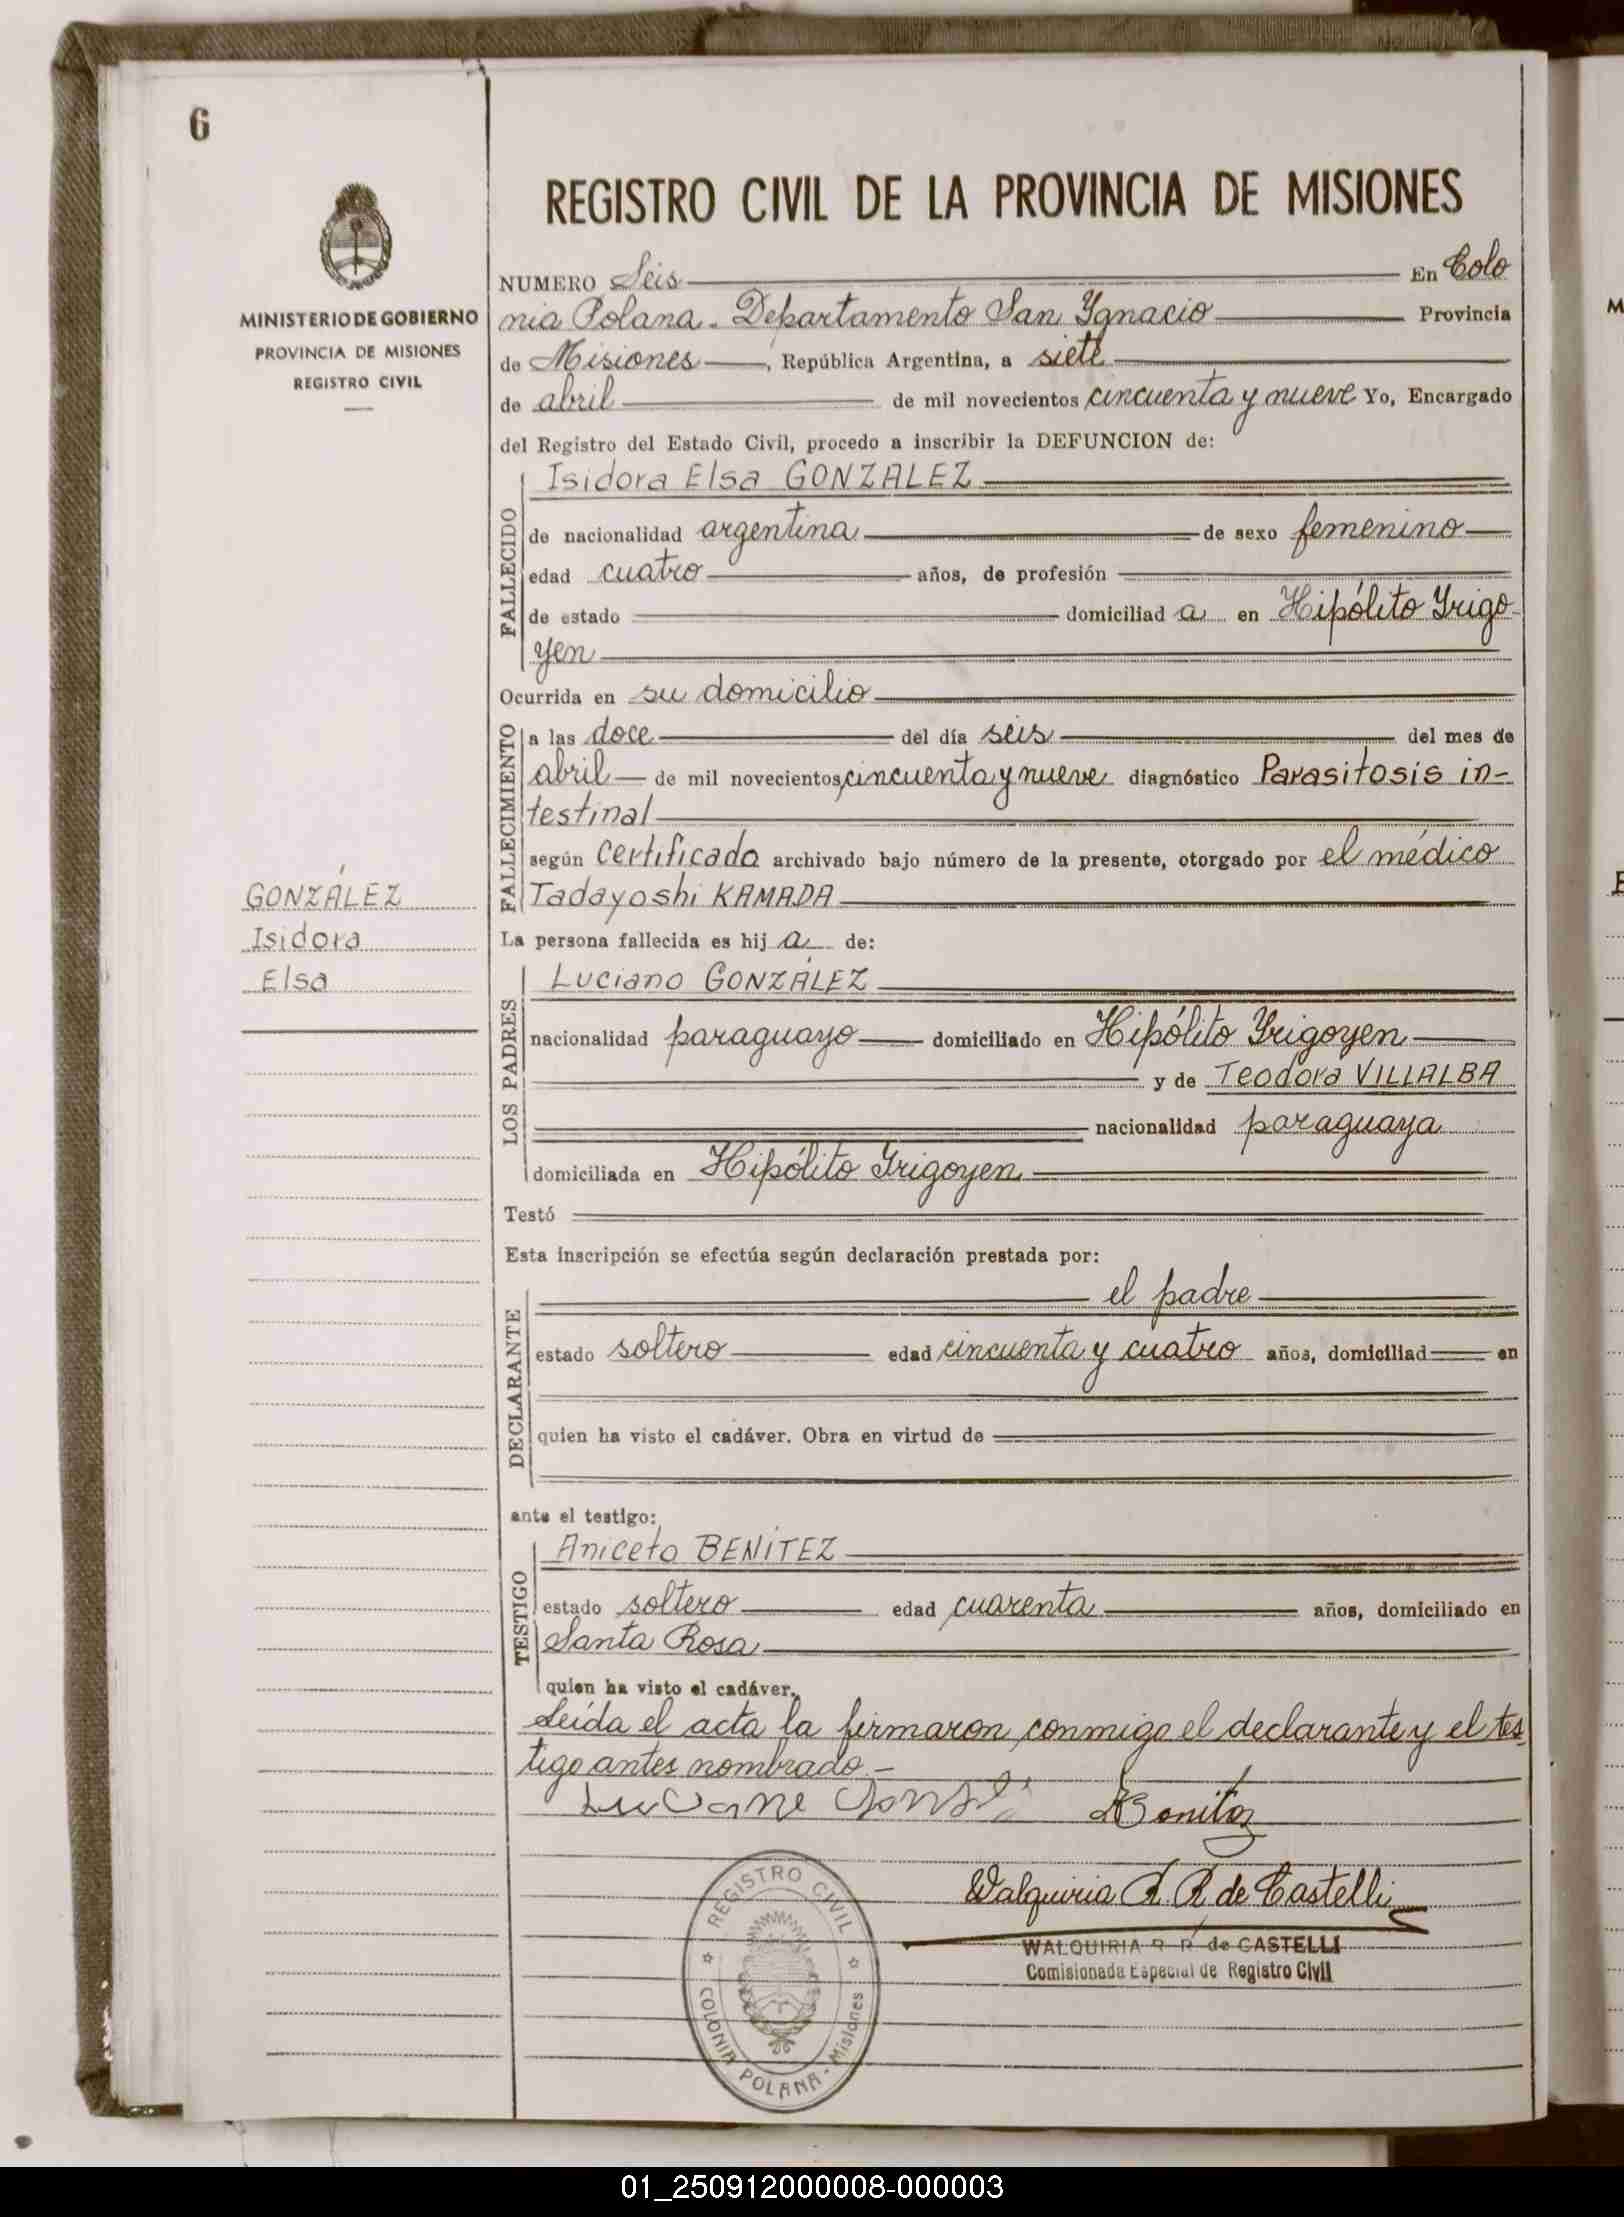 6
MINISTERIO DE GOBIERNO
PROVINCIA DE MISIONES
REGISTRO CIVIL
REGISTRO CIVIL DE LA PROVINCIA DE MISIONES
NUMERO Seis En Colo
nia Polana. Departamento San Ygnacio Provincia
de Misiones, República Argentina, a siete
de abril de mil novecientos cincuenta y nueve Yo, Encargado
del Registro del Estado Civil, procedo a inscribir la DEFUNCION de:
FALLECIDO
Isidora Elsa GONZALEZ
de nacionalidad argentina de sexo femenino
edad cuatro años, de profesión
de estado domiciliad a en Hipólito Yrigo
yen
Ocurrida en su domicilio
FALLECIMIENTO
a las doce del día seis del mes de
abril de mil novecientos cincuenta y nueve diagnóstico Parasitosis in-
testinal
según certificado archivado bajo número de la presente, otorgado por el médico
Tadayoshi KAMADA
GONZÁLEZ
Isidora
Elsa
La persona fallecida es hij a de:
LOS PADRES
Luciano GONZÁLEZ
nacionalidad paraguayo domiciliado en Hipólito Yrigoyen
y de Teodora VILLALBA
nacionalidad paraguaya
domiciliada en Hipólito Yrigoyen
Testó
Esta inscripción se efectúa según declaración prestada por:
DECLARANTE
el padre
estado soltero edad cincuenta y cuatro años, domiciliad en
quien ha visto el cadáver. Obra en virtud de
ante el testigo:
TESTIGO
Aniceto BENÍTEZ
estado soltero edad cuarenta años, domiciliado en
Santa Rosa
quien ha visto el cadáver.
Leída el acta la firmaron conmigo el declarante y el tes
tigo antes nombrado.-
Walquiria R. R. de Castelli
WALQUIRIA R. R. de CASTELLI
Comisionada Especial de Registro Civil
REGISTRO CIVIL
COLONIA POLANA - Misiones
01_250912000008-000003